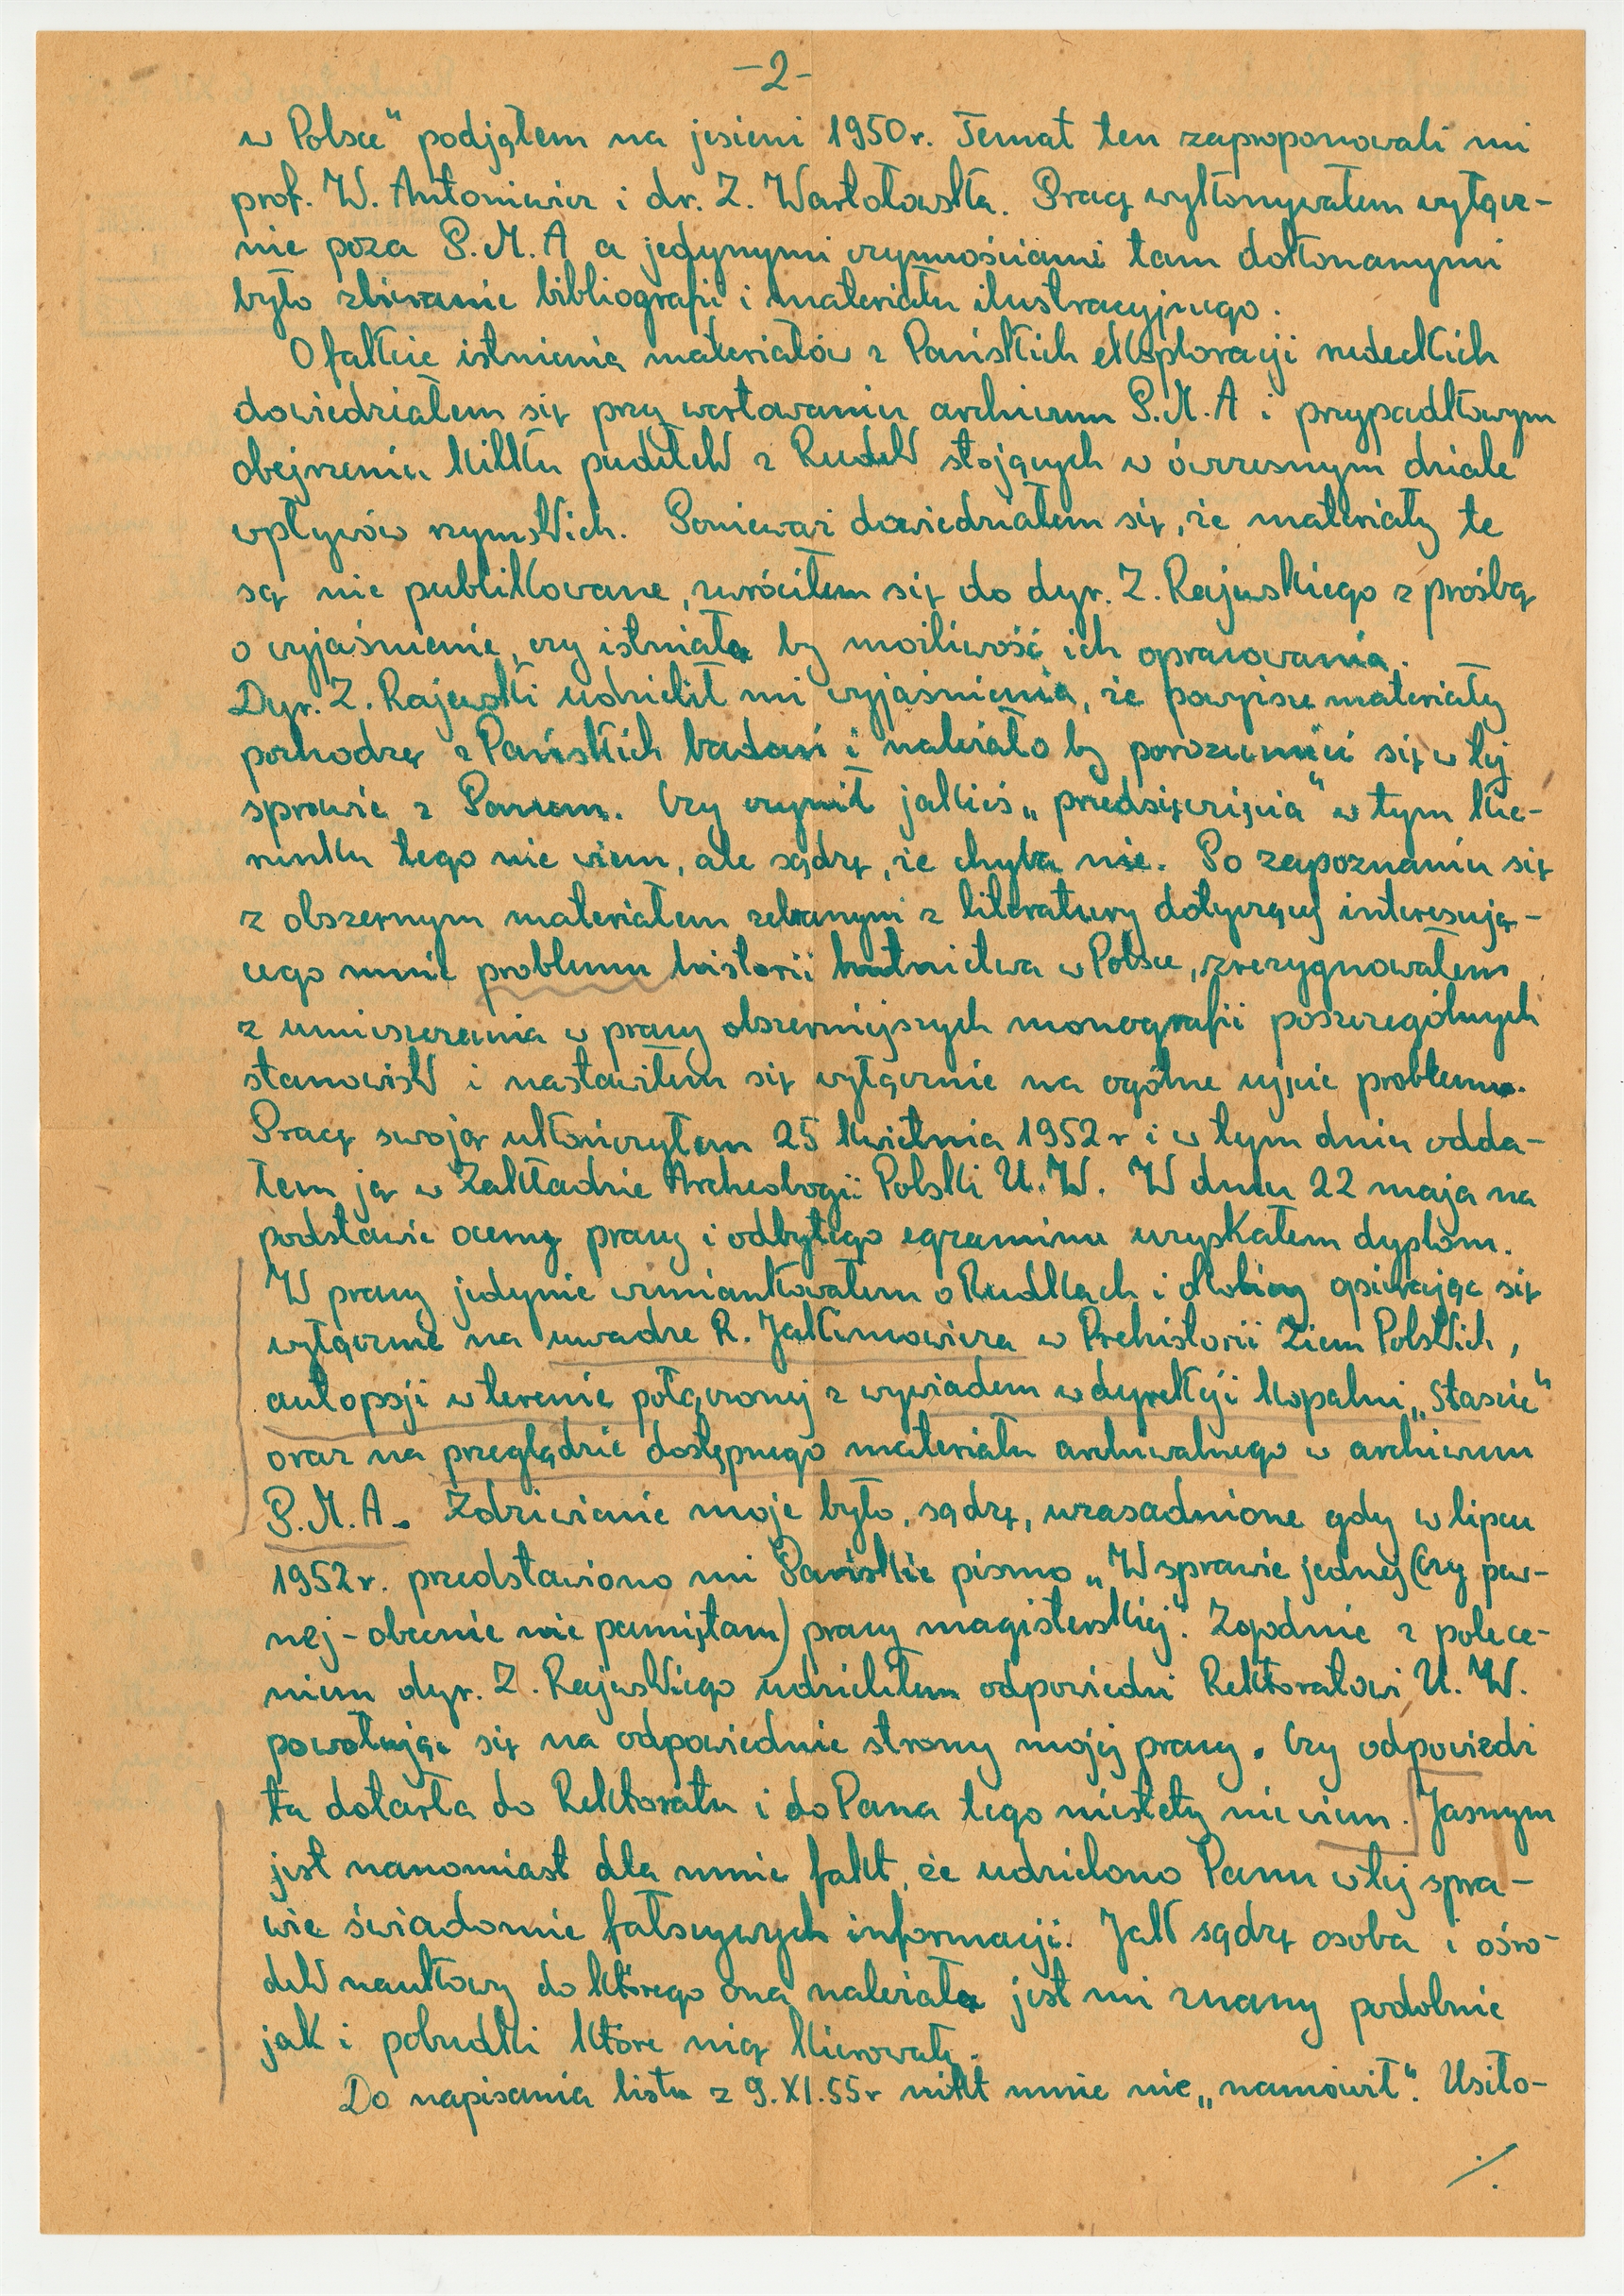 -2-
w Polsce" podjąłem na jesieni 1950r. Temat ten zaproponowali mi
prof. W. Antoniewicz i dr. Z. Wartołowska. Pracę wykonywałem wyłącz-
nie poza P.M.A a jedynymi czynnościami tam dokonanymi
było zbieranie bibliografii i materiału ilustracyjnego.
O fakcie istnienia materiałów z Pańskich eksploracji rudeckich
dowiedziałem się przy wertowaniu archiwum P.M.A i przypadkowym
obejrzeniu kilku pudełek z Rudek stojących w ówczesnym dziale
wpływów rzymskich. Ponieważ dowiedziałem się, że materiały te
są nie publikowane, zwróciłem się do dyr. Z. Rajewskiego z prośbą
o wyjaśnienie, czy istniała by możliwość ich opracowania.
Dyr. Z. Rajewski udzielił mi wyjaśnienia, że powyższe materiały
pochodzą z Pańskich badań i należało by porozumieć się w tej
sprawie z Panem. Czy czynił jakieś „przedsięwzięcia" w tym kie-
runku tego nie wiem, ale sądzę, że chyba nie. Po zapoznaniu się
z obszernym materiałem zebranym z literatury dotyczącej interesują-
cego mnie problemu historii hutnictwa w Polsce, zrezygnowałem
z umieszczania w pracy obszerniejszych monografii poszczególnych
stanowisk i nastawiłem się wyłącznie na ogólne ujęcie problemu.
Pracę swoją ukończyłem 25 kwietnia 1952r i w tym dniu odda-
łem ją w Zakładzie Archeologii Polski U.W. W dniu 22 maja na
podstawie oceny pracy i odbytego egzaminu uzyskałem dyplom.
W pracy jedynie wzmiankowałem o Rudkach i okolicy opierając się
wyłącznie na uwadze R. Jakimowicza w Prehistorii Ziem Polskich,
autopsji w terenie połączonej z wywiadem w dyrekcji kopalni „Staszic"
oraz na przeglądzie dostępnego materiału archiwalnego w archiwum
P.M.A. Zdziwienie moje było, sądzę, uzasadnione gdy w lipcu
1952r. przedstawiono mi Pańskie pismo „W sprawie jednej (czy pew-
nej - obecnie nie pamiętam) pracy magisterskiej". Zgodnie z polece-
niem dyr. Z. Rajewskiego udzieliłem odpowiedzi Rektoratowi U.W.
powołując się na odpowiednie strony mojej pracy. Czy odpowiedź
ta dotarła do Rektoratu i do Pana tego niestety nie wiem. Jasnym
jest nanomiast dla mnie fakt, że udzielono Panu w tej spra-
wie świadomie fałszywych informacji. Jak sądzę osoba i ośro-
dek naukowy do którego ona należała jest mi znany podobnie
jak i pobudki które nią kierowały.
Do napisania listu z 9.XI.55r nikt mnie nie „namówił". Usiło-
./.